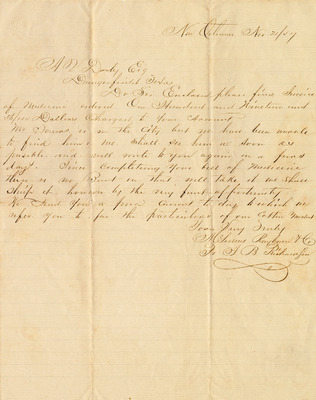 New Orleans Nov 21/57
A W Danby Esq
Daingerfield Texas
Dr Sir Enclosed please find Invoice
of Medicine ordered One Hundred and Nineteen and
Dollars Charged to your account
Mr is in the City but we have been unable
to find him we shall see him as soon as
possible and will write to you again in a few
days. Since completing your bill of Medicine
there is no Boat in that will take it we shall
Ship it however by the very first opportunity
We Send you a price Current to day to which we
refer you to for the particulars of our Cotton Market
Yours Very Truly
& Co